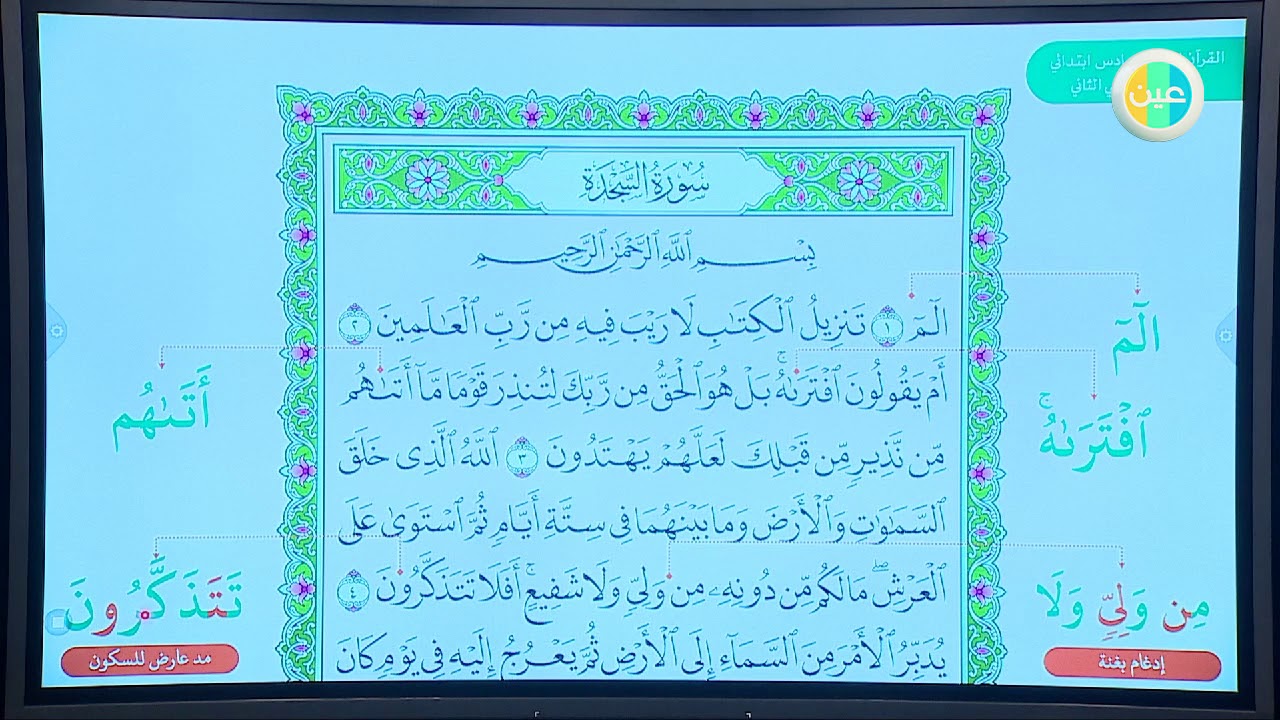 القرآن سادس ابتدائي
الثاني
عين
سُورَةُ السَّجْدَةِ
بِسْمِ ٱللَّهِ ٱلرَّحْمَٰنِ ٱلرَّحِيمِ
الٓمٓ ١ تَنزِيلُ ٱلْكِتَٰبِ لَا رَيْبَ فِيهِ مِن رَّبِّ ٱلْعَٰلَمِينَ ٢
أَمْ يَقُولُونَ ٱفْتَرَىٰهُۚ بَلْ هُوَ ٱلْحَقُّ مِن رَّبِّكَ لِتُنذِرَ قَوْمًا مَّآ أَتَىٰهُم
مِّن نَّذِيرٍ مِّن قَبْلِكَ لَعَلَّهُمْ يَهْتَدُونَ ٣ ٱللَّهُ ٱلَّذِى خَلَقَ
ٱلسَّمَٰوَٰتِ وَٱلْأَرْضَ وَمَا بَيْنَهُمَا فِى سِتَّةِ أَيَّامٍ ثُمَّ ٱسْتَوَىٰ عَلَى
ٱلْعَرْشِۖ مَا لَكُم مِّن دُونِهِۦ مِن وَلِىٍّ وَلَا شَفِيعٍۚ أَفَلَا تَتَذَكَّرُونَ ٤
يُدَبِّرُ ٱلْأَمْرَ مِنَ ٱلسَّمَآءِ إِلَى ٱلْأَرْضِ ثُمَّ يَعْرُجُ إِلَيْهِ فِى يَوْمٍ كَانَ
الٓمٓ
ٱفْتَرَىٰهُۚ
مِن وَلِىٍّ وَلَا
إدغام بغنة
أَتَىٰهُم
تَتَذَكَّرُونَ
مد عارض للسكون